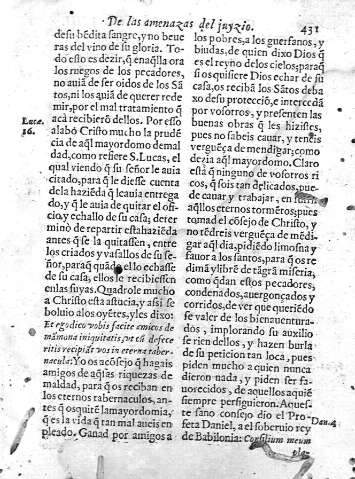 De las amenazas del juyzio. 431
desu bẽdita sangre, y no beue
ras del vino de su gloria. To-
do esto es dezir, q̃ enaq̃lla ora
los ruegos de los pecadores,
no auiã de ser oidos de los Sã
tos, ni los auiã de querer rede
mir, por el mal tratamiẽto q̃
acà recibierõ dellos. Por esso
Luce. 16.
alabó Cristo mucho la prudẽ
cia de aq̃l mayordomo demal
dad, como refiere S. Lucas, el
qual viendo q̃ su señor le auia
citado, para q̃ le diesse cuenta
dela haziẽda q̃ leauia entrega
do, y q̃ le auia de quitar el ofi-
cio, y echallo de su casa; deter
minò de repartir estahaziẽda
antes q̃ se la quitassen, entre
los criados y vasallos de su se-
ñor, paraq̃ quãdo ello echasse
de su casa, ellos le recibiessen
en las suyas. Quadrole mucho
a Christo esta astucia, y assi se
boluio alos oyẽtes, y les dixo:
Et ego dico vobis facite amicos de
mãmona iniquitatis, vt cũ defece
ritis recipiãt vos in eterna taber-
nacula: Yo os acõsejo q̃ hagais
amigos de aq̃llas riquezas de
maldad, para q̃ os reciban en
los eternos tabernaculos, an-
tes q̃ os quitẽ lamayordomia,
q̃ es la vida q̃ tan mal aueis em
pleado. Ganad por amigos a
los pobres, a los guerfanos, y
biudas, de quien dixo Dios q̃
es el reyno de los cielos; paraq̃
si os quisiere Dios echar de su
casa, os recibã los Sãtos deba
xo desu protecciõ, e intercedã
por vosotros, y presenten las
buenas obras q̃ les hizistes,
pues no sabeis cauar, y teneis
verguẽça de mendigar; como
dezia aq̃l mayordomo. Claro
està q̃ ninguno de vosotros ri
cos, q̃ sois tan delicados, pue-
de cauar y trabajar, en
aq̃llos eternos tormẽtos; pues
tomad el cõsejo de Christo, y
no tẽdreis verguẽça de mẽdi-
gar aq̃l dia, pidiẽdo limosna y
fauor a los santos, para q̃ os re
dimã y libre de tãgrã miseria,
como q̃dan estos pecadores,
condenados, auergonçados y
corridos, de ver que queriẽdo
se valer de los bienauentura-
dos, implorando su auxilio
se rien dellos, y hazen burla
de su peticion tan loca, pues
piden mucho a quien nunca
dieron nada, y piden ser fa-
uorecidos, de aquellos aquiẽ
siempre persiguieron. Aques-
te sano consejo dio el Pro-
Dan. 4
feta Daniel, a el soberuio rey
de Babilonia: Consilium meum
pla